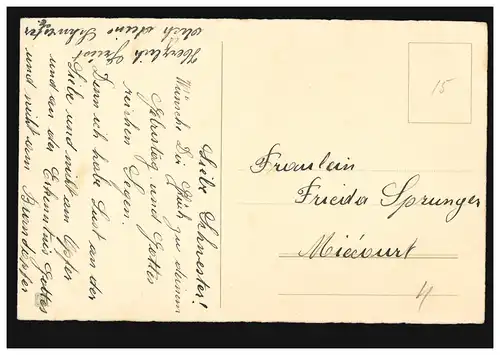 Liebe Schwester!
Wünsche Dir Glück zu deinem
Geburtstag und Gottes
reichen Segen.
Denn ich habe Lust an der
Liebe und nicht am Opfer
und an der Erkenntnis Gottes
und nicht am Brandopfer
Herzlich Grüsst
dich deine Schwester
Fraulein
Frieda Sprunger
Miécourt
15
4